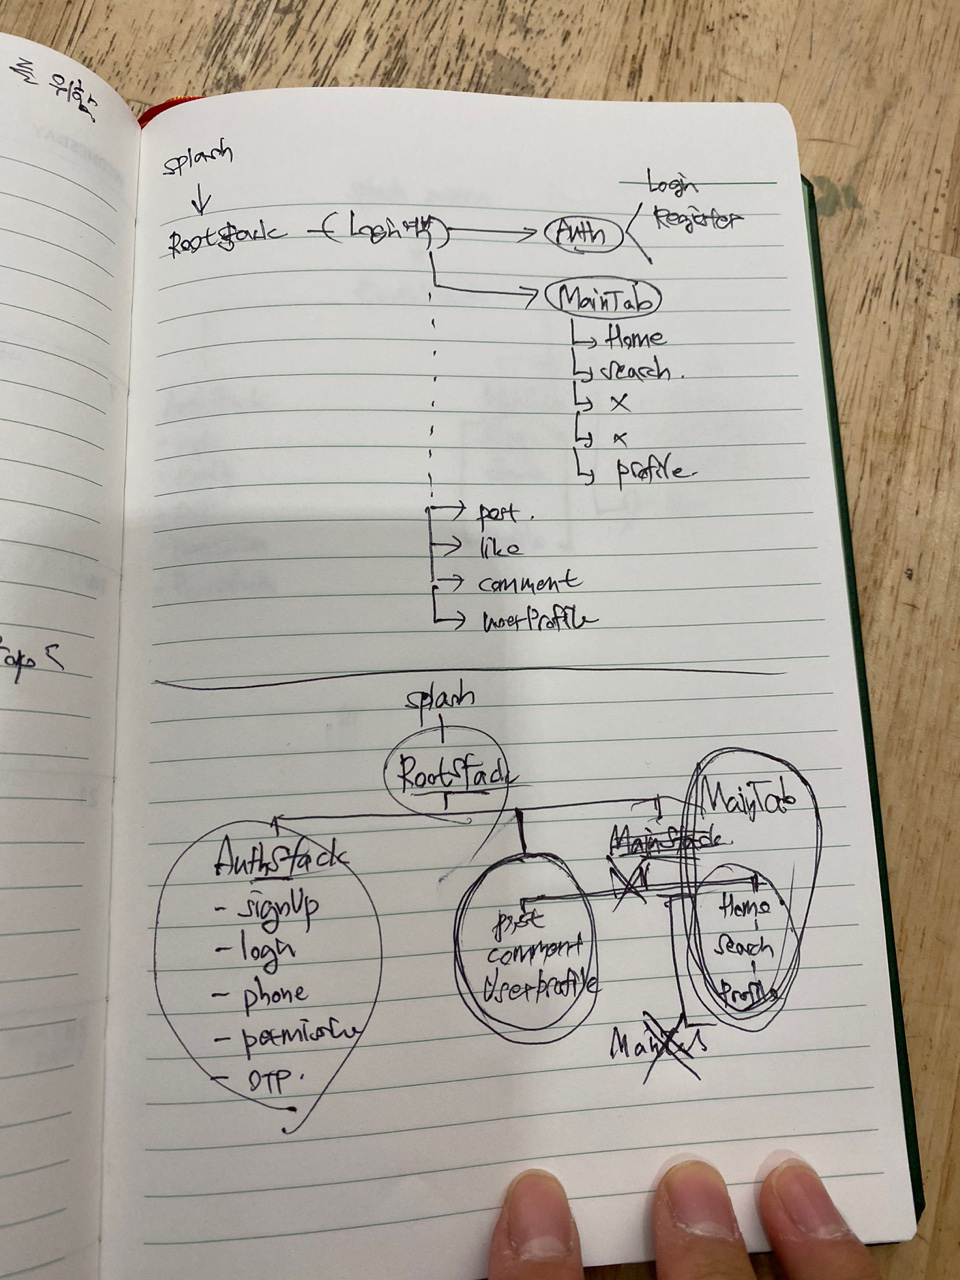 를 위함
splash
RootStack (Login여부)
Auth
Login
Register
MainTab
Home
search.
x
x
profile.
post.
like
comment
userProfile
splash
RootStack
MainTab
MainStack
AuthStack
- signUp
- login
- phone
- OTP.
post
comment
UserProfile
Home
search
profile